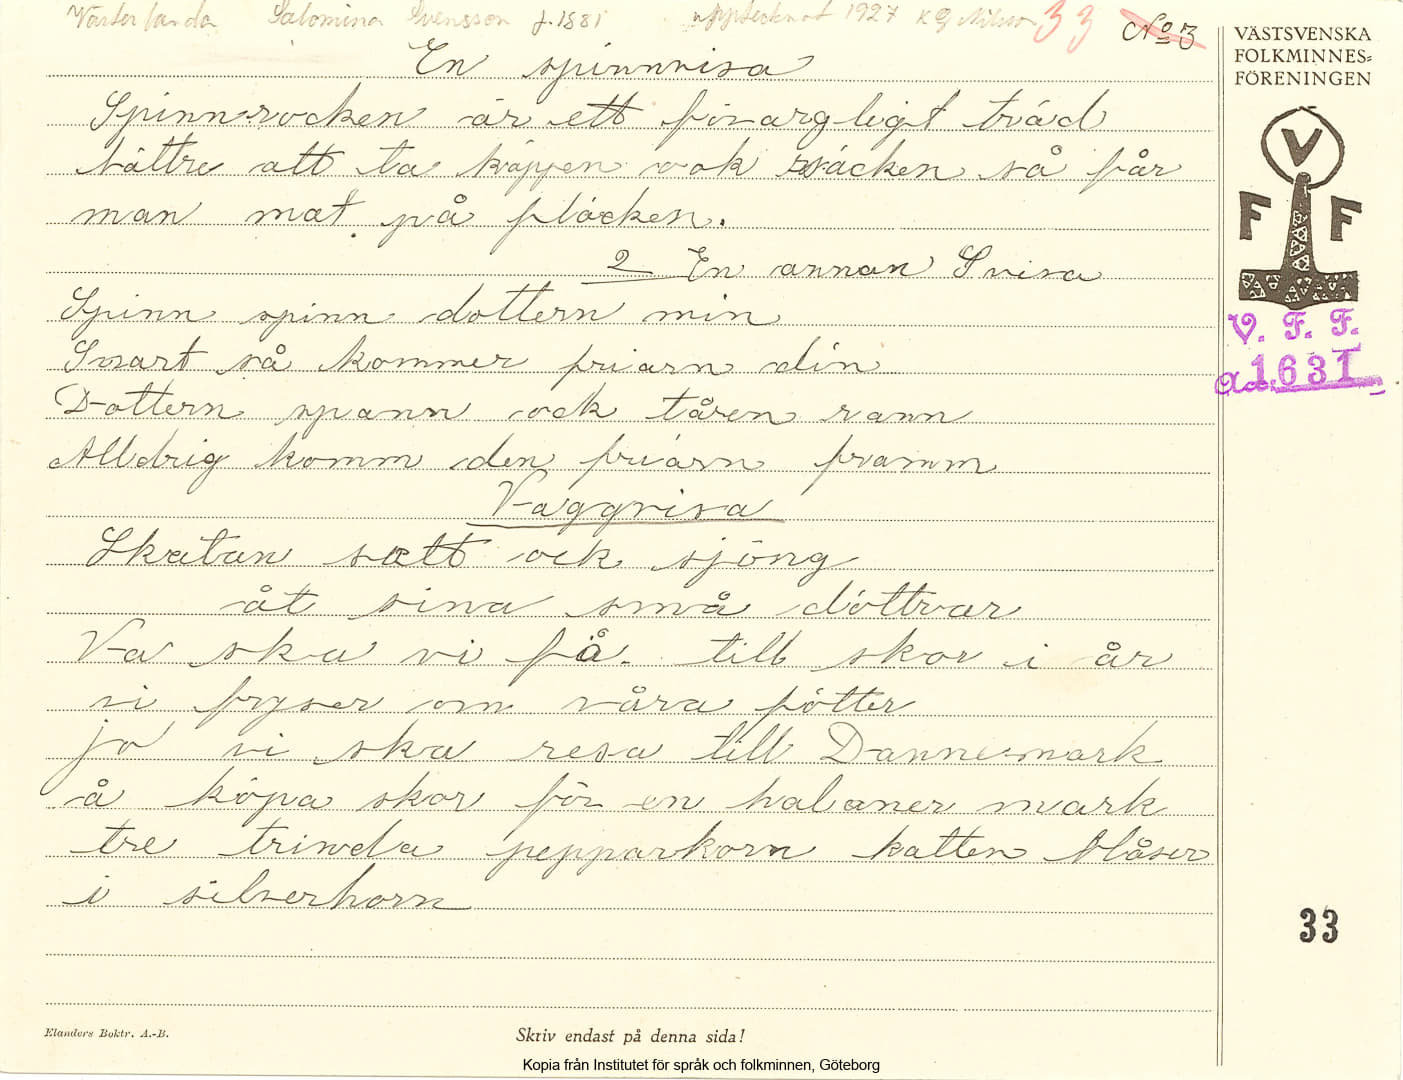 Västerlanda Salomina Svensson f. 1881 upptecknat 1927 K G Nilson 33 No 3
En spinnvisa
Spinnrocken är ett förargligt träd
bättre att ta käppen ock säcken så får
man mat på fläcken.
2 En annan Svisa
Spinn spinn dottern min
Snart så kommer friarn din
Dottern spann ock tåren rann
Alldrig komm den friarn framm
Vaggvisa
Skatan satt ock sjöng
åt sina små döttrar
Va ska vi få till skor i år
vi fryser om våra fötter
jo vi ska resa till Dannemark
å köpa skor för en halaner mark
tre trinda pepparkorn katten blåser
i silverhorn
VÄSTSVENSKA
FOLKMINNES=
FÖRENINGEN
V
F F
V. F. F.
Acc. 1631
33
Elanders Boktr. A.-B.
Skriv endast på denna sida!
Kopia från Institutet för språk och folkminnen, Göteborg